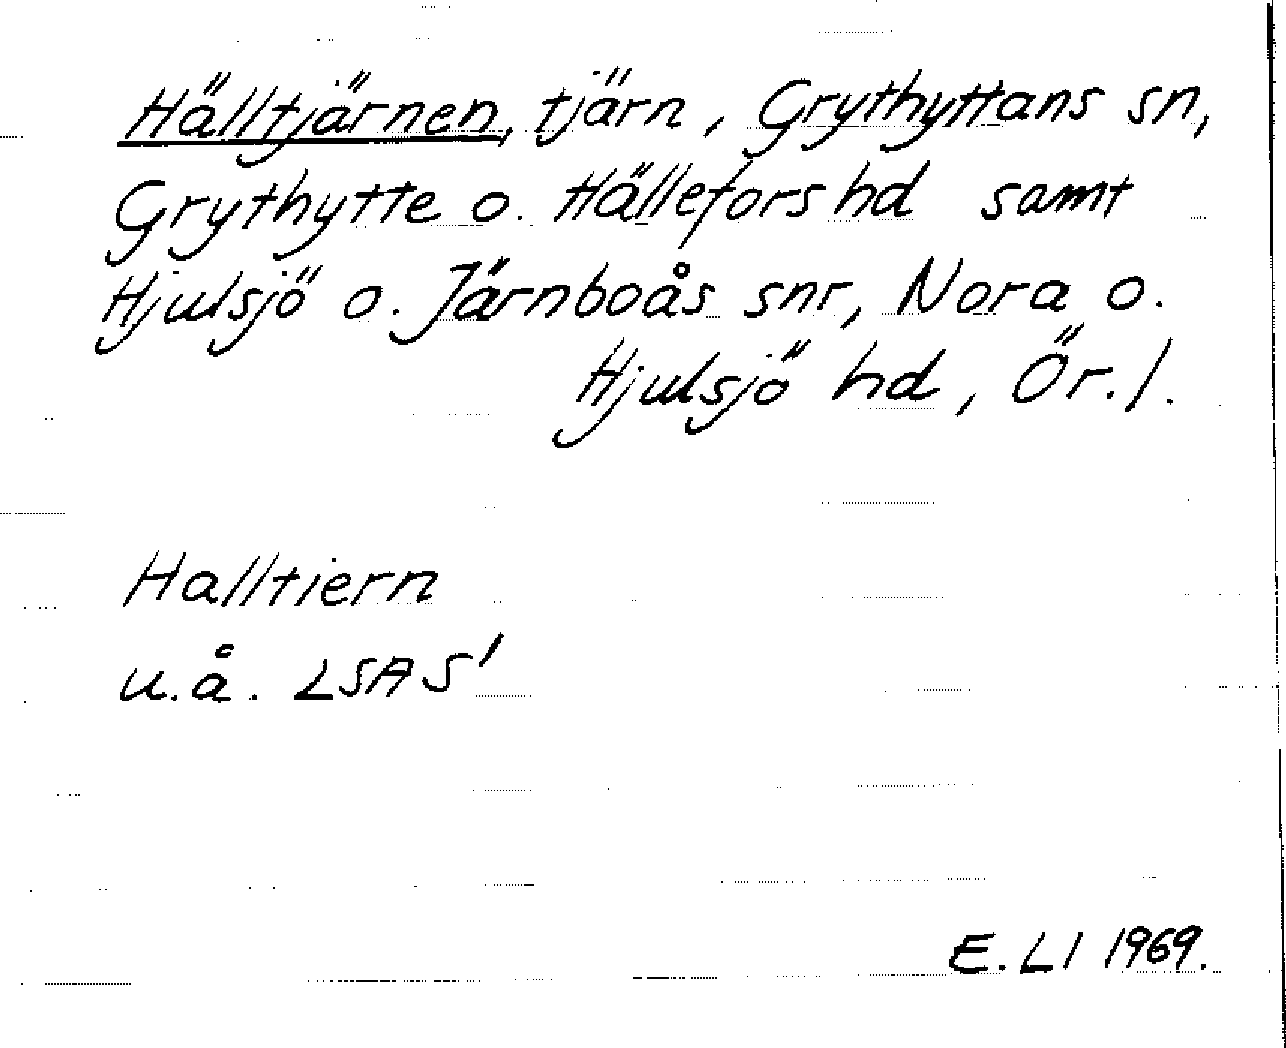 Hälltjärnen, tjärn, Grythyttans sn,
Grythytte o. Hällefors hd samt
Hjulsjö o. Järnboås snr, Nora o.
Hjulsjö hd, Ör. l.
Halltiern
u.å. LSA S'
E. LI 1969.